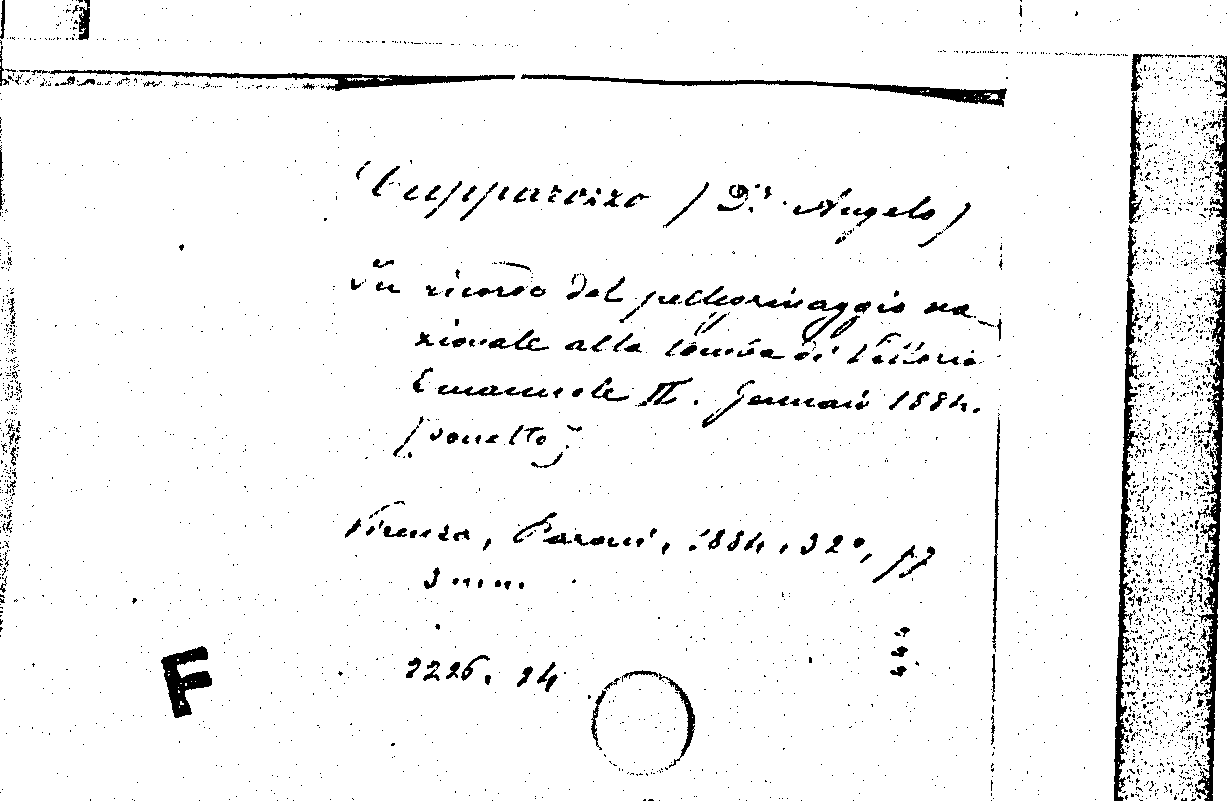 Capparozzo (Dr. Angelo)
In ricordo del pellegrinaggio na-
zionale alla tomba di Vittorio
Emanuele II. Gennaio 1884.
[sonetto]
Firenze, Parani, 1884, 32°, pp
3 nnn.
2226. 24
F